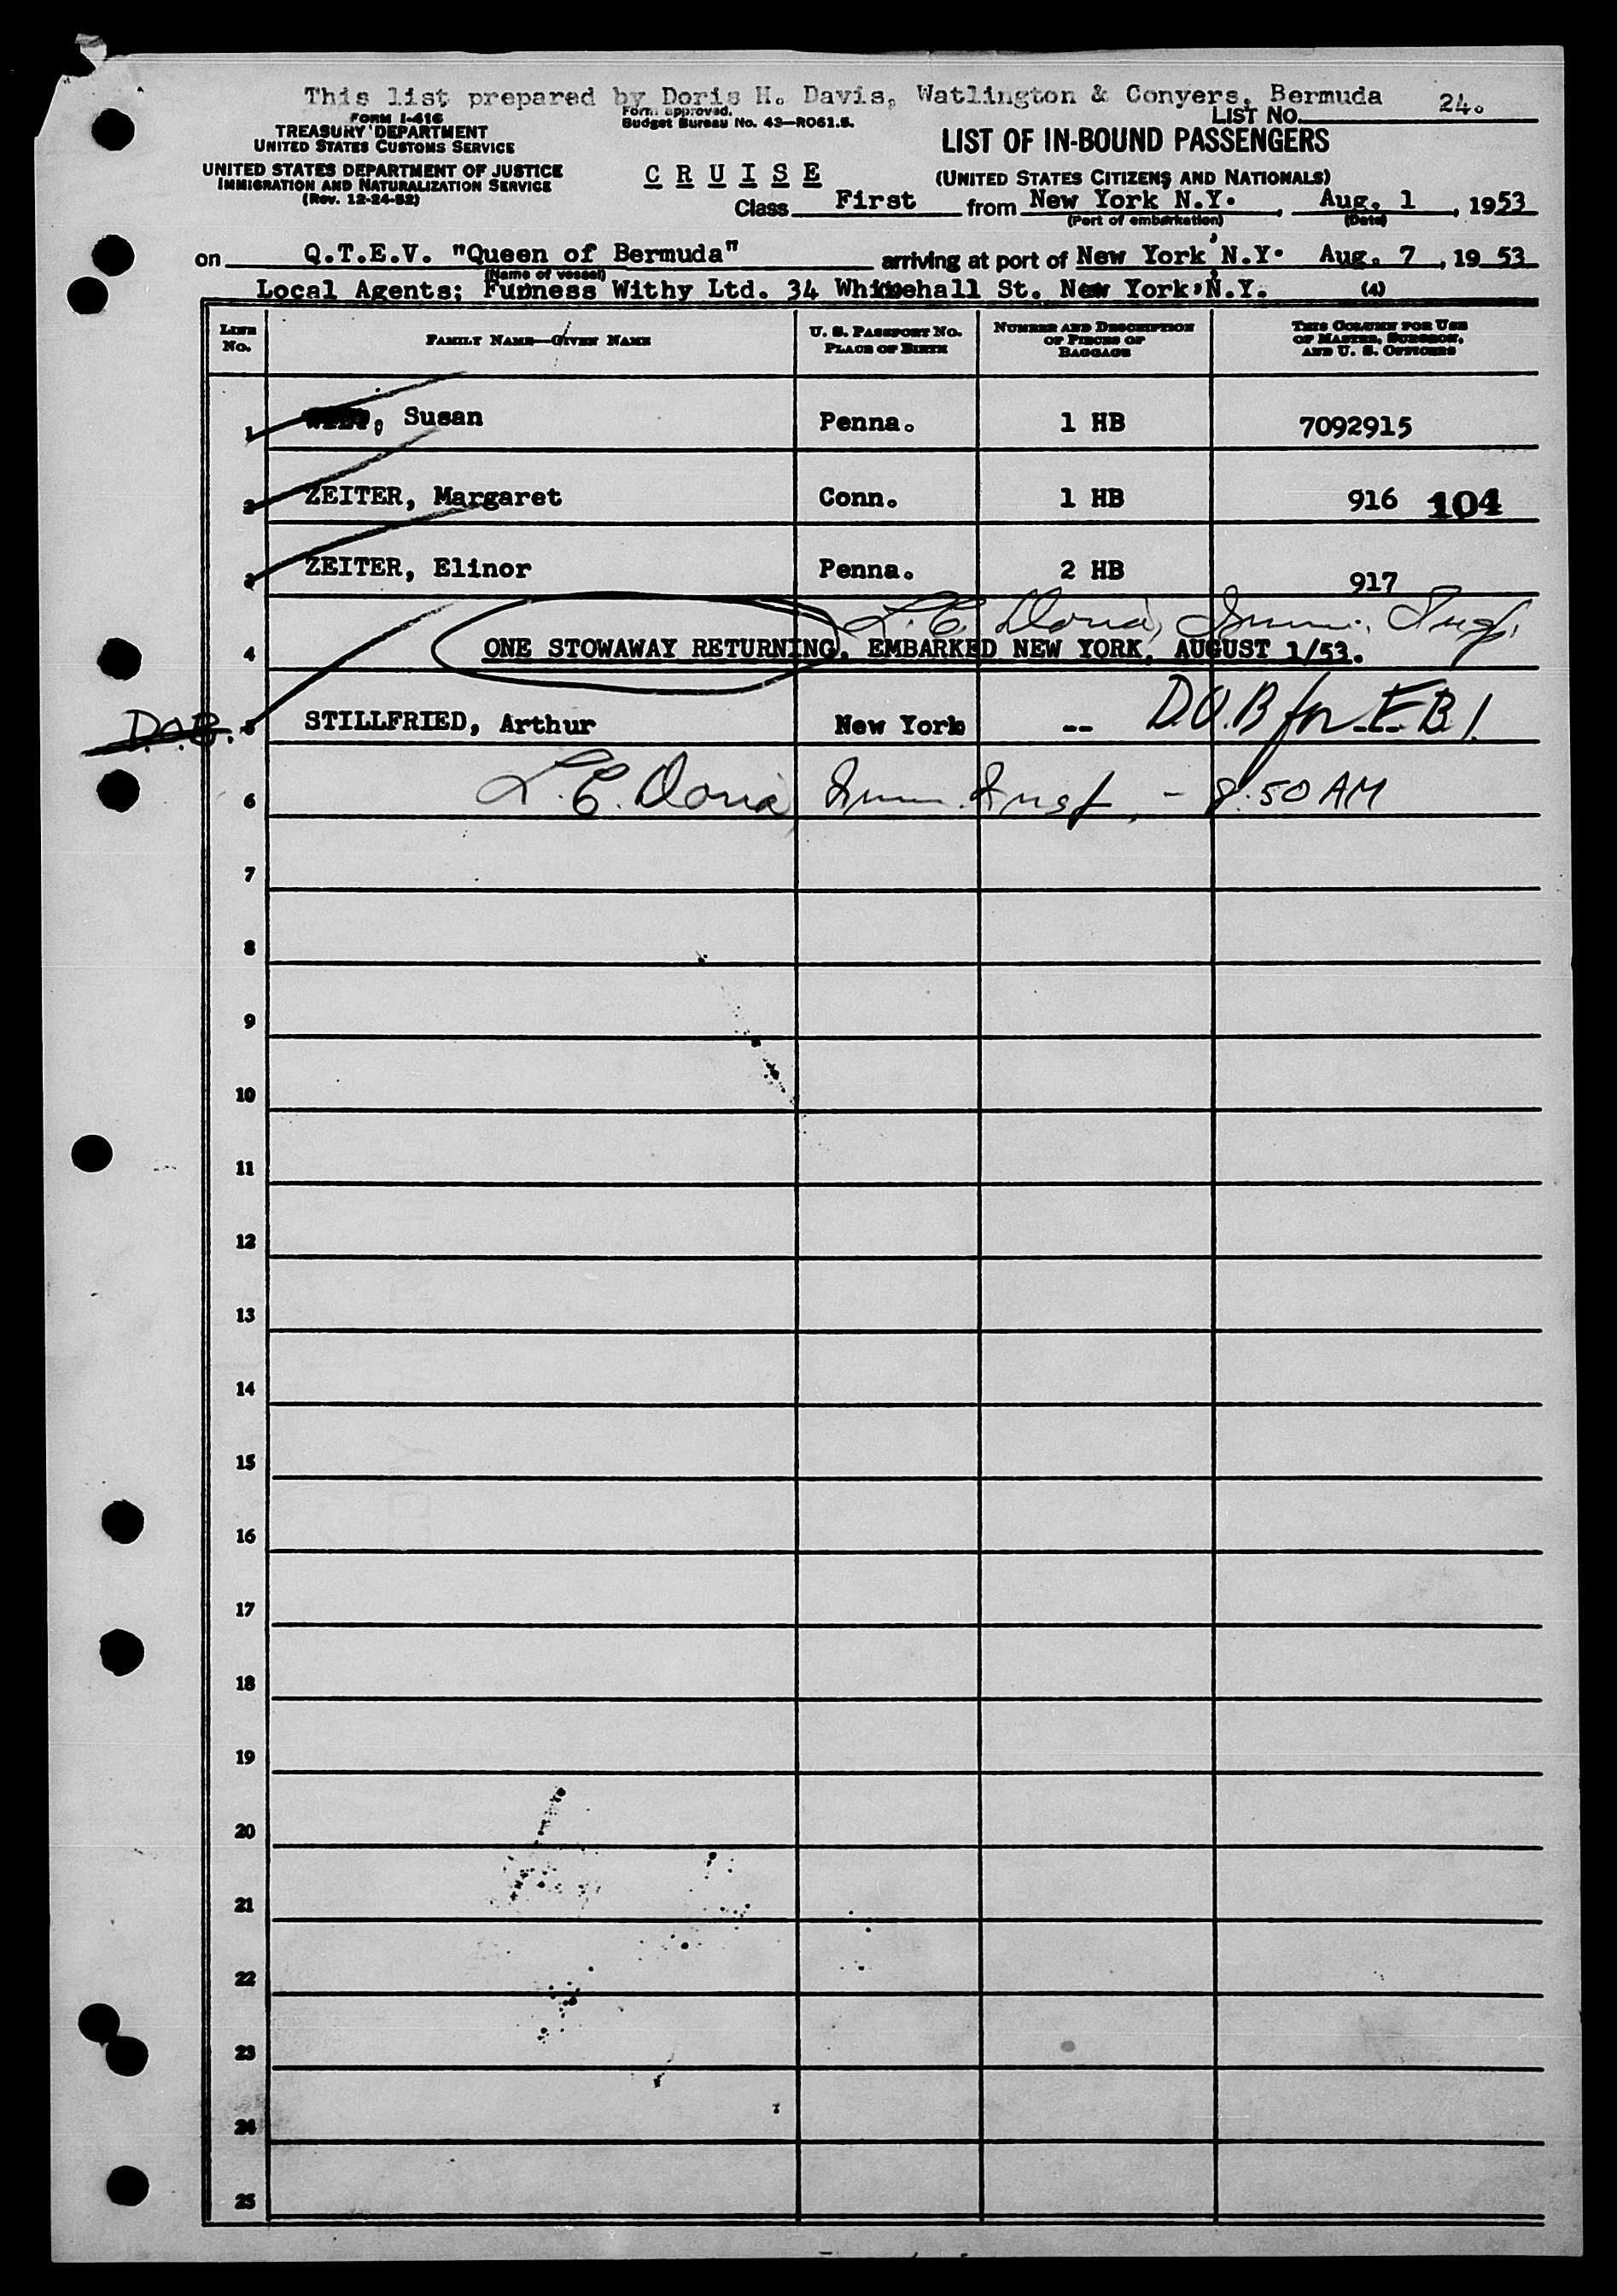 This list prepared by Doris H. Davis, Watlington & Conyers, Bermuda
LIST NO. 24.
FORM I-416
TREASURY DEPARTMENT
UNITED STATES CUSTOMS SERVICE
Form approved.
Budget Bureau No. 43-RO61.5.
LIST OF IN-BOUND PASSENGERS
UNITED STATES DEPARTMENT OF JUSTICE
IMMIGRATION AND NATURALIZATION SERVICE
(Rev. 12-24-52)
C R U I S E
(UNITED STATES CITIZENS AND NATIONALS)
Class First from New York N.Y. , Aug. 1 , 1953
(Port of embarkation) (Date)
on Q.T.E.V. "Queen of Bermuda" arriving at port of New York, N.Y. Aug. 7 , 19 53
(Name of vessel)
Local Agents; Furness Withy Ltd. 34 Whitehall St. New York, N.Y. (4)
LINE No. FAMILY NAME—GIVEN NAME U. S. PASSPORT NO. PLACE OF BIRTH NUMBER AND DESCRIPTION OF PIECES OF BAGGAGE THIS COLUMN FOR USE OF MASTER, SURGEON, AND U. S. OFFICERS
1 , Susan Penna. 1 HB 7092915
2 ZEITER, Margaret Conn. 1 HB 916 104
3 ZEITER, Elinor Penna. 2 HB 917
L. C. Doria, Imm. Insp.
4 ONE STOWAWAY RETURNING, EMBARKED NEW YORK, AUGUST 1/53.
D.O.B. 5 STILLFRIED, Arthur New York -- D.O.B for F.B.I.
6 L. C. Doria Imm. Insp. - 8:50 AM
7
8
9
10
11
12
13
14
15
16
17
18
19
20
21
22
23
24
25